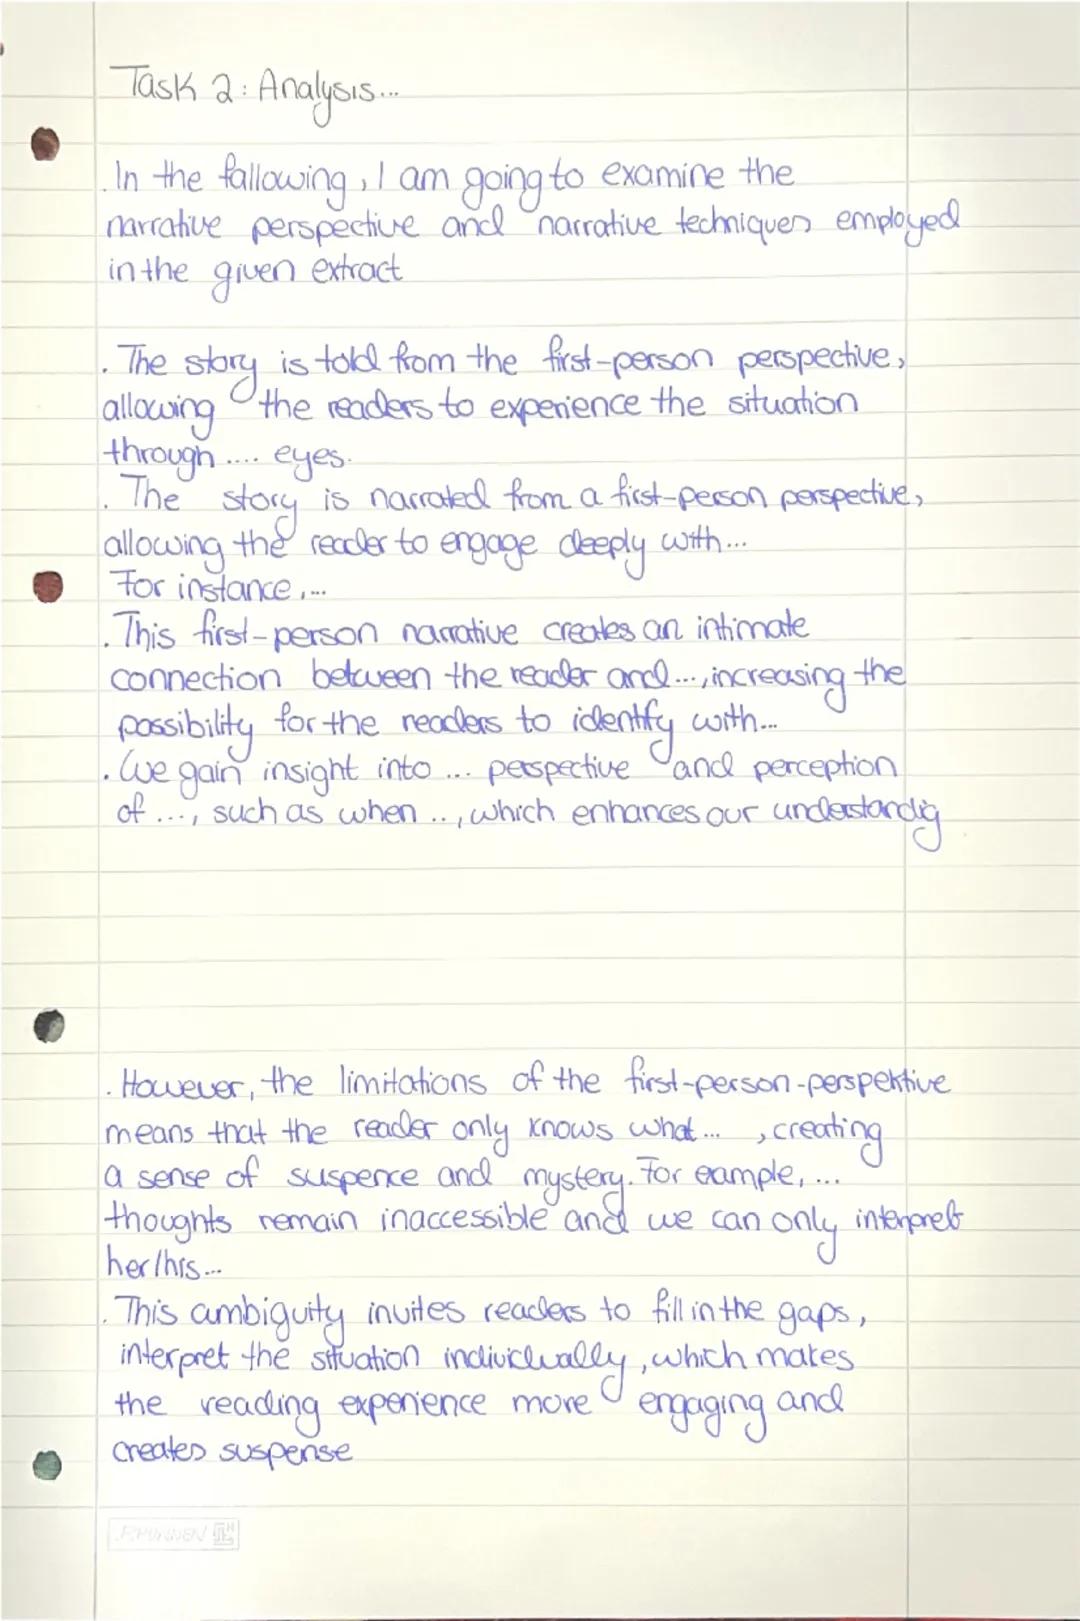 Task 2: Analysis...
. In the fallowing, I am going to examine the
narrative perspective and narrative techniques employed
in the given extract
. The story is told from the first-person perspective,
allowing the readers to experience the situation
through .... eyes.
. The story is narrated from a first-person perspective,
allowing the reader to engage deeply with...
For instance,...
. This first-person narrative creates an intimate
connection between the reader and..., increasing the
possibility for the readers to identify with...
. We gain insight into ... perspective and perception
of ..., such as when .., which enhances our understandig
. However, the limitations of the first-person-perspektive
means that the reader only knows what... , creating
a sense of suspence and mystery. For eample, ...
thoughts remain inaccessible and we can only interpret
her/his...
. This ambiguity invites readers to fill in the gaps,
interpret the situation individually, which makes
the reading experience more engaging and
creates suspense
BRUNNEN